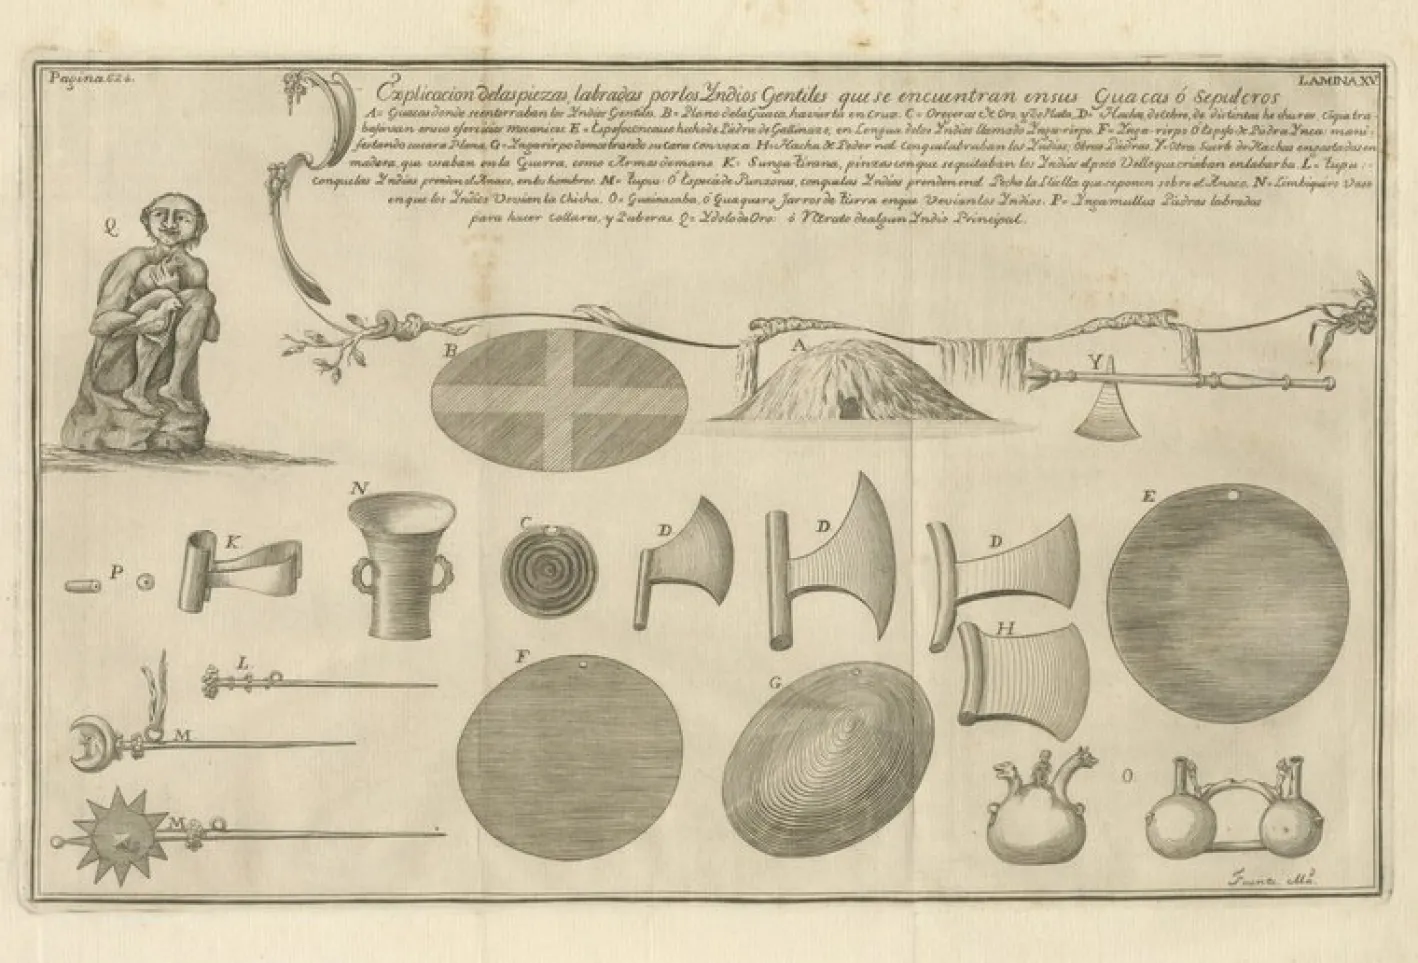 Pagina 624.
LAMINA XV
Explicacion delas piezas, labradas por los Yndios Gentiles que se encuentran en sus Guacas ó Sepulcros
A= Guacas donde se enterraban los Yndios Gentiles. B= Plano dela Guaca, havierta en Cruz. C= Orejeras de Oro, y de Plata, D= Hachas, de Cobre, de distintas hechuras, Con que tra-
bajavan en sus exercicios mecanicos. E= Espejo concauo hecho de Piedra de Gallinazo, en Lengua delos Yndios llamado Ynga-rirpo. F= Ynga-rirpo ó Espejo de Piedra Ynca: mani-
festando su cara Plana. G= Yngarirpo demostrando su cara Convexa. H= Hacha de Pedernal con que labraban los Yndios, Obras Piedras. Y= Otra Suerte de Hachas engastadas en
madera, que usaban en la Guerra, como Armas de mano. K= Sunga tirana, pinzas con que se quitaban los Yndios el poco Vello que criaban en la barba. L= tupu:-
con que las Yndias prenden el Anaco, en los hombros. M= tupu: Ó Especie de Punzones, con que las Yndias prenden en el Pecho la Lliclla que se ponen sobre el Anaco. N= Limbiquiro Vaso
en que los Yndios Vevian la Chicha. O= Guainacaba, ó Guaquero Jarros de tierra en que Vevian los Yndios. P= Yngamullus Piedras labradas
para hacer Collares, y Pulceras Q= Ydolo de Oro: ó Retrato de algun Yndio Principal.
Q
B
A
Y
N
K
P
C
D
D
D
E
H
L
M
F
G
M
O
Fuente Md.